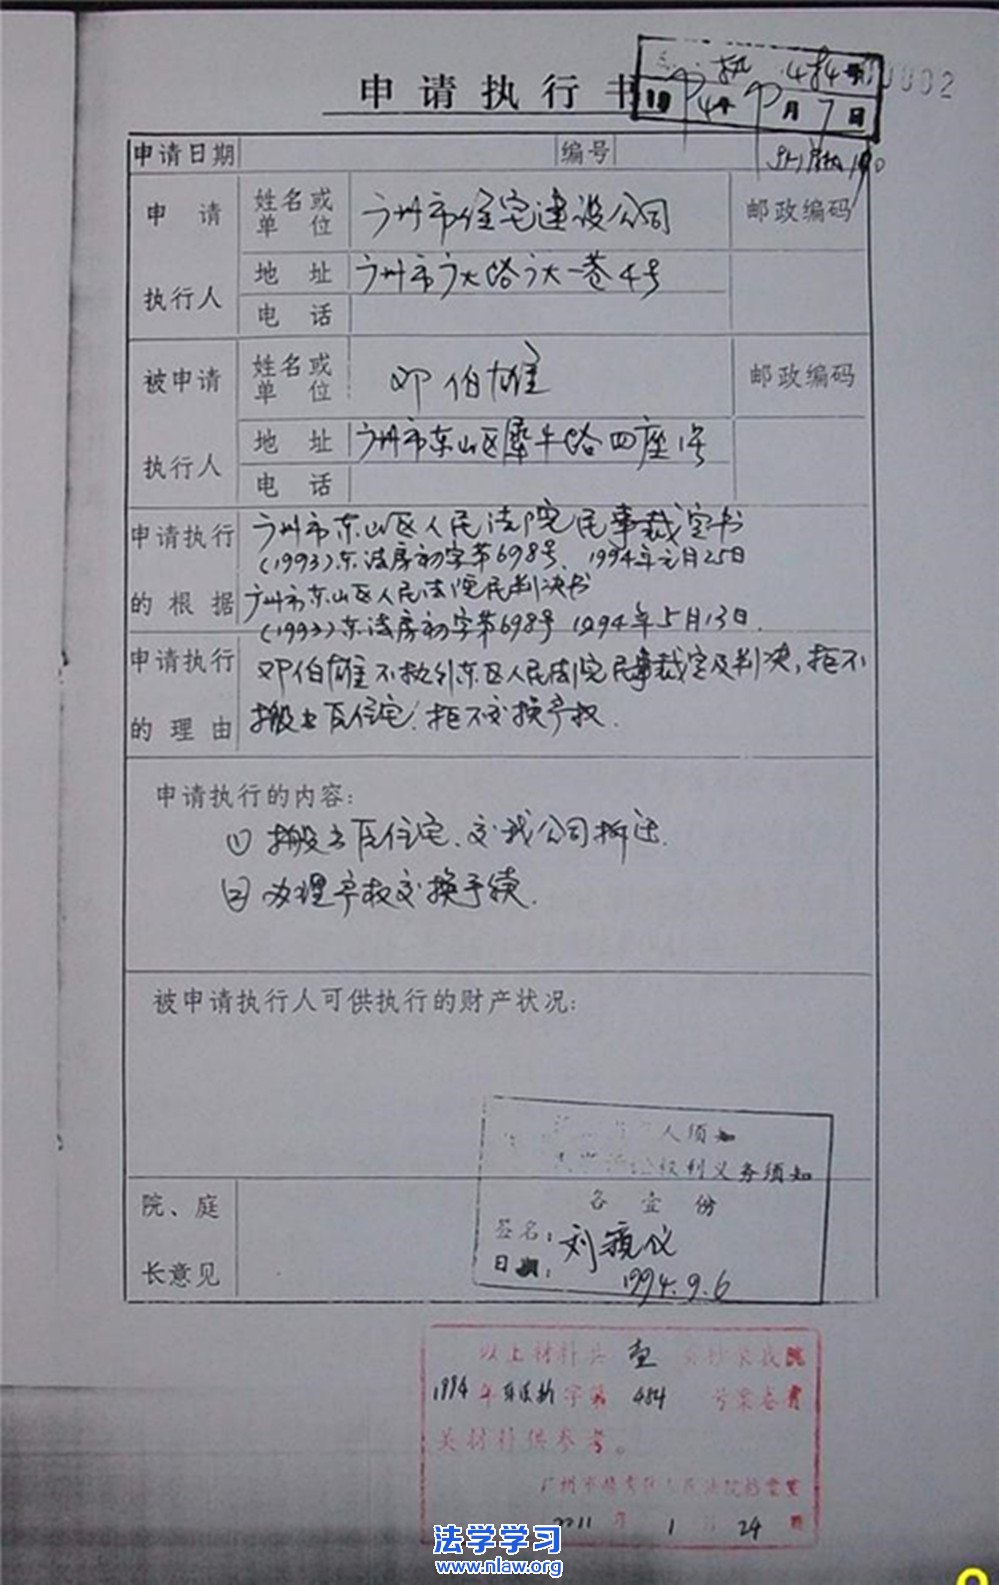 申请执行书
执 484号
1994年9月7日
0002
申请日期 编号
申请执行人 姓名或单位 广州市住宅建设公司 邮政编码
地址 广州市广大路广大一巷4号
电话
被申请执行人 姓名或单位 邓伯雄 邮政编码
地址 广州市东山区犀牛路四座1号
电话
申请执行的根据 广州市东山区人民法院民事裁定书
(1993)东法房初字第698号、1994年元月25日
广州市东山区人民法院民判决书
(1993)东法房初字第698号 1994年5月13日.
申请执行的理由 邓伯雄不执行东区人民法院民事裁定及判决,拒不
搬出瓦住宅,拒不交换产权.
申请执行的内容:
① 搬出瓦住宅、交我公司拆迁.
② 办理产权交换手续.
被申请执行人可供执行的财产状况:
人须知
权利义务须知
各壹份
签名:刘
日期:1994.9.6
院、庭长意见
以上材料共 壹
1994年东法执字第 484 号案卷
关材料供参考。
广州市越秀区人民法院档案室
2011年 1月 24日
法学学习
www.nlaw.org